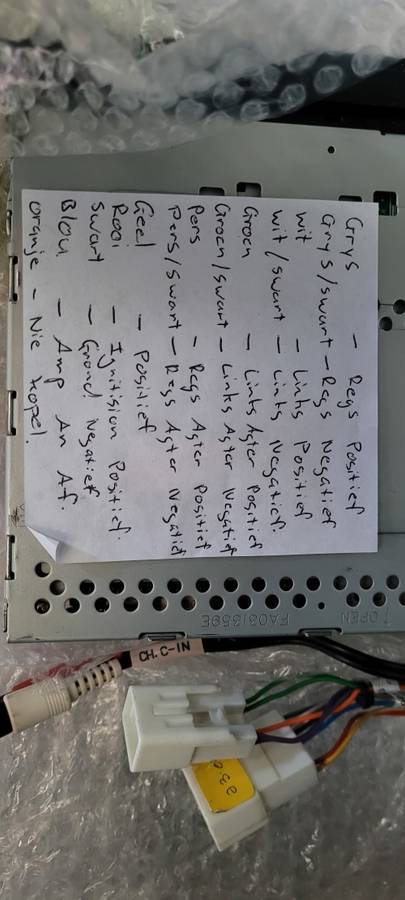 Grys - Regs Positief
Grys/swart - Regs Negatief
wit - Links Positief
wit/swart - Links Negatief.
Groen - Links Agter Positief
Groen/swart - Links Agter Negatief
Pers - Regs Agter Positief
Pers/swart - Regs Agter Negatief
Geel - Positief
Rooi - Ignitision Positief.
Swart - Grond Negatief
Blou - Amp An Af.
oranje - Nie kopel.
FA0316359E
OPEN
CH.C-IN